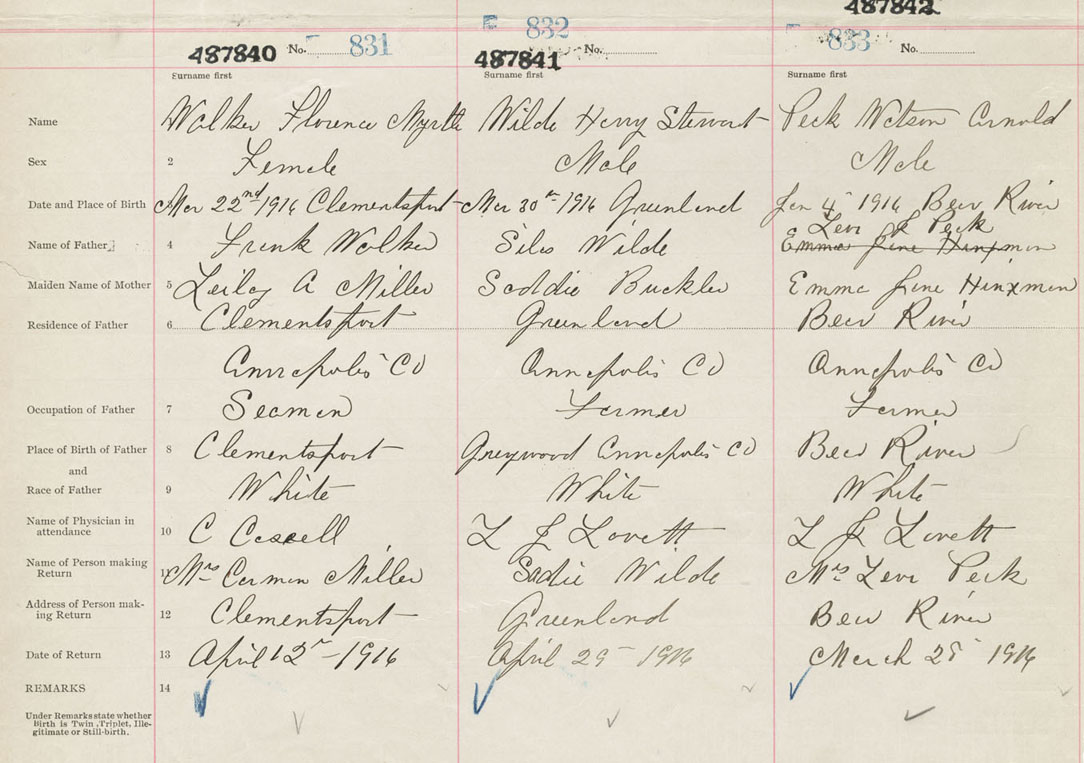 487842
487840 No. 831 832 487841 No. 833 No.
Surname first Surname first Surname first
Name Walker Florence Myrtle Wilde Harry Stewart Peck Watson Arnold
Sex 2 Female Male Male
Date and Place of Birth 3 Mar 22nd 1916 Clementsport Mar 30th 1916 Greenland Jan 4 1916 Bear River
Levi J Peck
Name of Father 4 Frank Walker Silas Wilde Emma Jane Hinxman
Maiden Name of Mother 5 A Miller Saddie Buckler Emma Jane Hinxman
Residence of Father 6 Clementsport Greenland Bear River
Annapolis Co Annapolis Co Annapolis Co
Occupation of Father 7 Seaman Farmer Farmer
Place of Birth of Father 8 Clementsport Greywood Annapolis Co Bear River
and
Race of Father 9 White White White
Name of Physician in
attendance 10 C L J Lovett L J Lovett
Name of Person making
Return 11 Mrs Carman Miller Sadie Wilde Mrs Levi Peck
Address of Person mak-
ing Return 12 Clementsport Greenland Bear River
Date of Return 13 April 12 1916 April 29 1916 March 28 1916
REMARKS 14
Under Remarks state whether
Birth is Twin, Triplet, Ille-
gitimate or Still-birth.